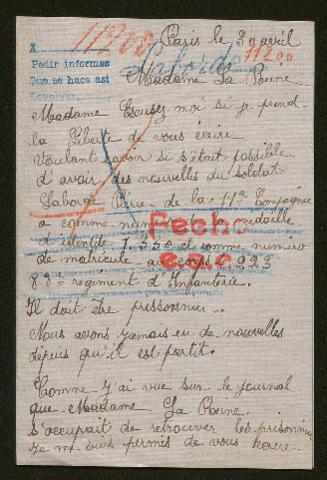 Paris le 30 avril
11200
11200
A
Pedir informes
Que se hace así
Laborde
Madame La Reine
Madame Escusez moi si je prend
la liberté de vous écrire
Voulant savoir si s'était possible
d'avoir des nouvelles du soldat
Laborde de la 11e Compagnie
a comme numéro de la médaille
d'identité 1.350 et comme numéro
de matricule au corps 2.223
88e regiment d'Infanterie.
Fecho
Il doit être prissonnier.
Nous avons jamais eu de nouvelles
depuis qu'il est partit.
Comme j'ai vue sur le journal
que Madame La Reine
s'occupait de retrouver les prisonniers
Je me suis permis de vous écrire